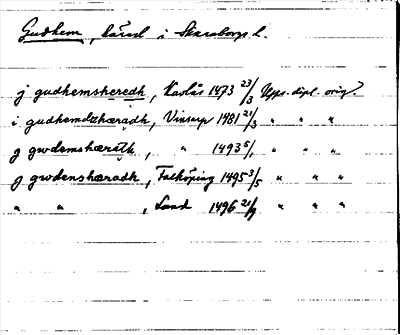 Gudhem, härad i Skaraborgs l.
j gudhemsheredh, Karlås 1473 23/3 Upps. dipl. orig.
i gudhemdzhæradh, Vintorp 1481 21/3 " " "
g gwdemshæreth, " 1493 5/1 " " "
g gwdenshæradh, Falköping 1495 3/5 " " "
" " , Lund 1496 21/9 " " "